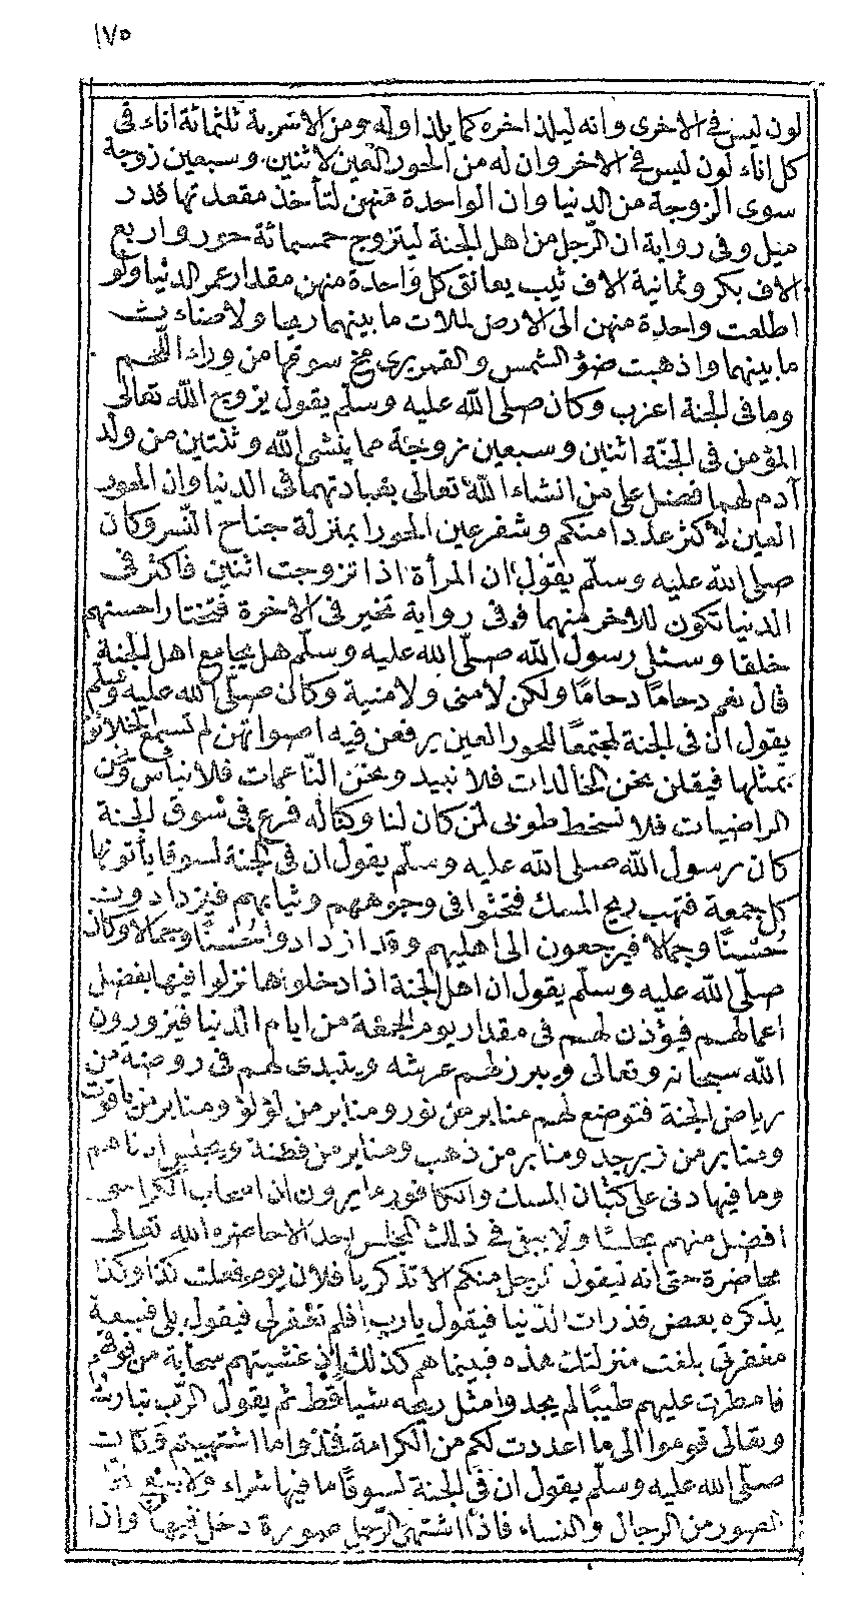 ١٧٥
لون ليس في الاخرى وانه ليلذ اخره كما يلذ اوله ومن الاشربة ثلثمائة اناء في
كل اناء لون ليس في الاخر وان له من الحور العين لاثنين وسبعين زوجة
سوى الزوجة من الدنيا وان الواحدة منهن لتأخذ مقعدتها قدر
ميل وفى رواية ان الرّجل من اهل الجنة ليتزوج خمسمائة حور واربع
الاف بكر وثمانية الاف ثيب يعانق كل واحدة منهن مقدار عمر الدنيا ولو
اطلعت واحدة منهن الى الارض لملات ما بينهما ريحا ولاضاءت
ما بينهما واذهبت ضؤ الشمس والقمر يرى مخ سوقها من وراء اللّحم
وما فى الجنة اعزب وكان صلى اللّه عليه وسلّم يقول يزوج اللّه تعالى
المؤمن فى الجنّة اثنين وسبعين زوجة مما ينشى اللّه وثنتين من ولد
آدم لهما فضل على من انشاء اللّه تعالى بعبادتهما فى الدنيا وان الحور
العين لأكثر عددا منكم وشفر عين الحورا بمنزلة جناح النّسر وكان
صلى اللّه عليه وسلّم يقول ان المرأة اذا تزوجت اثنين فاكثر فى
الدنيا تكون للاخر منهما وفى رواية تخير فى الاخرة فتختار احسنهم
خلقا وسئل رسول اللّه صلّى اللّه عليه وسلّم هل يجامع اهل الجنة
قال نعم دحامًا دحامًا ولكن لا منى ولا منية وكان صلّى اللّه عليه وسلّم
يقول ان فى الجنة لمجتمعًا للحور العين يرفعن فيه اصواتهن لم تسمع الخلائق
بمثلها فيقلن نحن الخالدات فلا نبيد ونحن النّاعمات فلا نبأس ونحن
الراضيات فلا نسخط طوبى لمن كان لنا وكنا له فرع فى سوق الجنة
كان رسول اللّه صلى اللّه عليه وسلّم يقول ان فى الجنة لسوقا يأتونها
كل جمعة فتهب ريح المسك فتحثوا فى وجوههم وثيابهم فيزدادون
حُسْنًا وجمالا فيرجعون الى اهليهم وقد ازدادوا حُسْنًا وجمالا وكان
صلّى اللّه عليه وسلّم يقول ان اهل الجنة اذا دخلوها نزلوا فيها بفضل
اعمالهم فيؤذن لهم فى مقدار يوم الجمعة من ايام الدنيا فيزورون
اللّه سبحانه وتعالى ويبرز لهم عرشه ويتبدى لهم فى روضة من
رياض الجنة فتوضع لهم منابر من نور ومنابر من لؤلؤ ومنابر من ياقوت
ومنابر من زبرجد ومنابر من ذهب ومنابر من فضة ويجلس ادناهم
وما فيها دنى على كثبان المسك والكافور ما يرون ان اصحاب الكراسى
افضل منهم مجلسًا ولا يبقى فى ذلك المجلس احد الا حاضره اللّه تعالى
محاضرة حتى انه ليقول للرجل منكم الا تذكر يا فلان يوم فعلت كذا وكذا
يذكره بعض قذرات الدّنيا فيقول يا رب افلم تغفر لى فيقول بلى فبسعة
مغفرتى بلغت منزلتك هذه فبينما هم كذلك اذ غشيتهم سحابة من فوقهم
فامطرت عليهم طيبًا لم يجدوا مثل ريحه شيا قط ثم يقول الرّب تبارك
وتعالى قوموا الى ما اعددت لكم من الكرامة فخذوا ما اشتهيتم وكان
صلّى اللّه عليه وسلّم يقول ان فى الجنة لسوقًا ما فيها شراء ولا بيع الا
الصور من الرجال والنساء فاذا اشتهى الرّجل صورة دخل فيها واذا